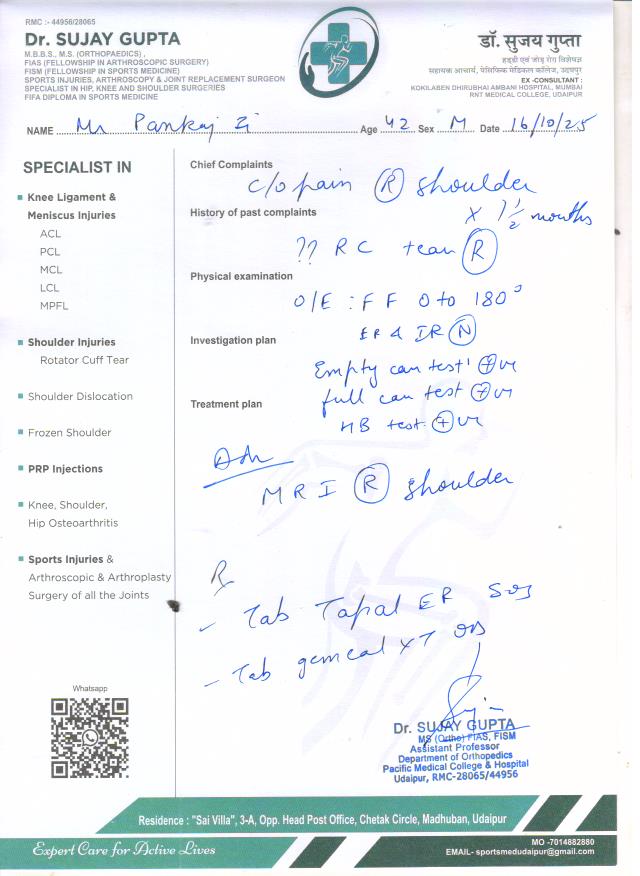 RMC :- 44956/28065
Dr. SUJAY GUPTA
M.B.B.S., M.S. (ORTHOPAEDICS) ,
FIAS (FELLOWSHIP IN ARTHROSCOPIC SURGERY)
FISM (FELLOWSHIP IN SPORTS MEDICINE)
SPORTS INJURIES, ARTHROSCOPY & JOINT REPLACEMENT SURGEON
SPECIALIST IN HIP, KNEE AND SHOULDER SURGERIES
FIFA DIPLOMA IN SPORTS MEDICINE
डॉ. सुजय गुप्ता
हड्डी एवं जोड़ रोग विशेषज्ञ
सहायक आचार्य, पेसिफिक मेडिकल कॉलेज, उदयपुर
EX -CONSULTANT :
KOKILABEN DHIRUBHAI AMBANI HOSPITAL, MUMBAI
RNT MEDICAL COLLEGE, UDAIPUR
NAME Mr Pankaj Ji Age 42 Sex M Date 16/10/25
SPECIALIST IN
Knee Ligament &
Meniscus Injuries
ACL
PCL
MCL
LCL
MPFL
Shoulder Injuries
Rotator Cuff Tear
Shoulder Dislocation
Frozen Shoulder
PRP Injections
Knee, Shoulder,
Hip Osteoarthritis
Sports Injuries &
Arthroscopic & Arthroplasty
Surgery of all the Joints
Whatsapp
Chief Complaints
c/o pain R shoulder
x 1 1/2 months
History of past complaints
?? RC tear R
Physical examination
O/E : FF 0 to 180°
ER & IR N
Investigation plan
Empty can test: +ve
full can test +ve
Treatment plan
HB test: +ve
Adv
MRI R shoulder
Rx
- Tab Tapal ER SOS
- Tab gemcal XT OD
Dr. SUJAY GUPTA
MS (Ortho) FIAS, FISM
Assistant Professor
Department of Orthopedics
Pacific Medical College & Hospital
Udaipur, RMC-28065/44956
Residence : "Sai Villa", 3-A, Opp. Head Post Office, Chetak Circle, Madhuban, Udaipur
Expert Care for Active Lives
MO -7014882880
EMAIL- sportsmedudaipur@gmail.com